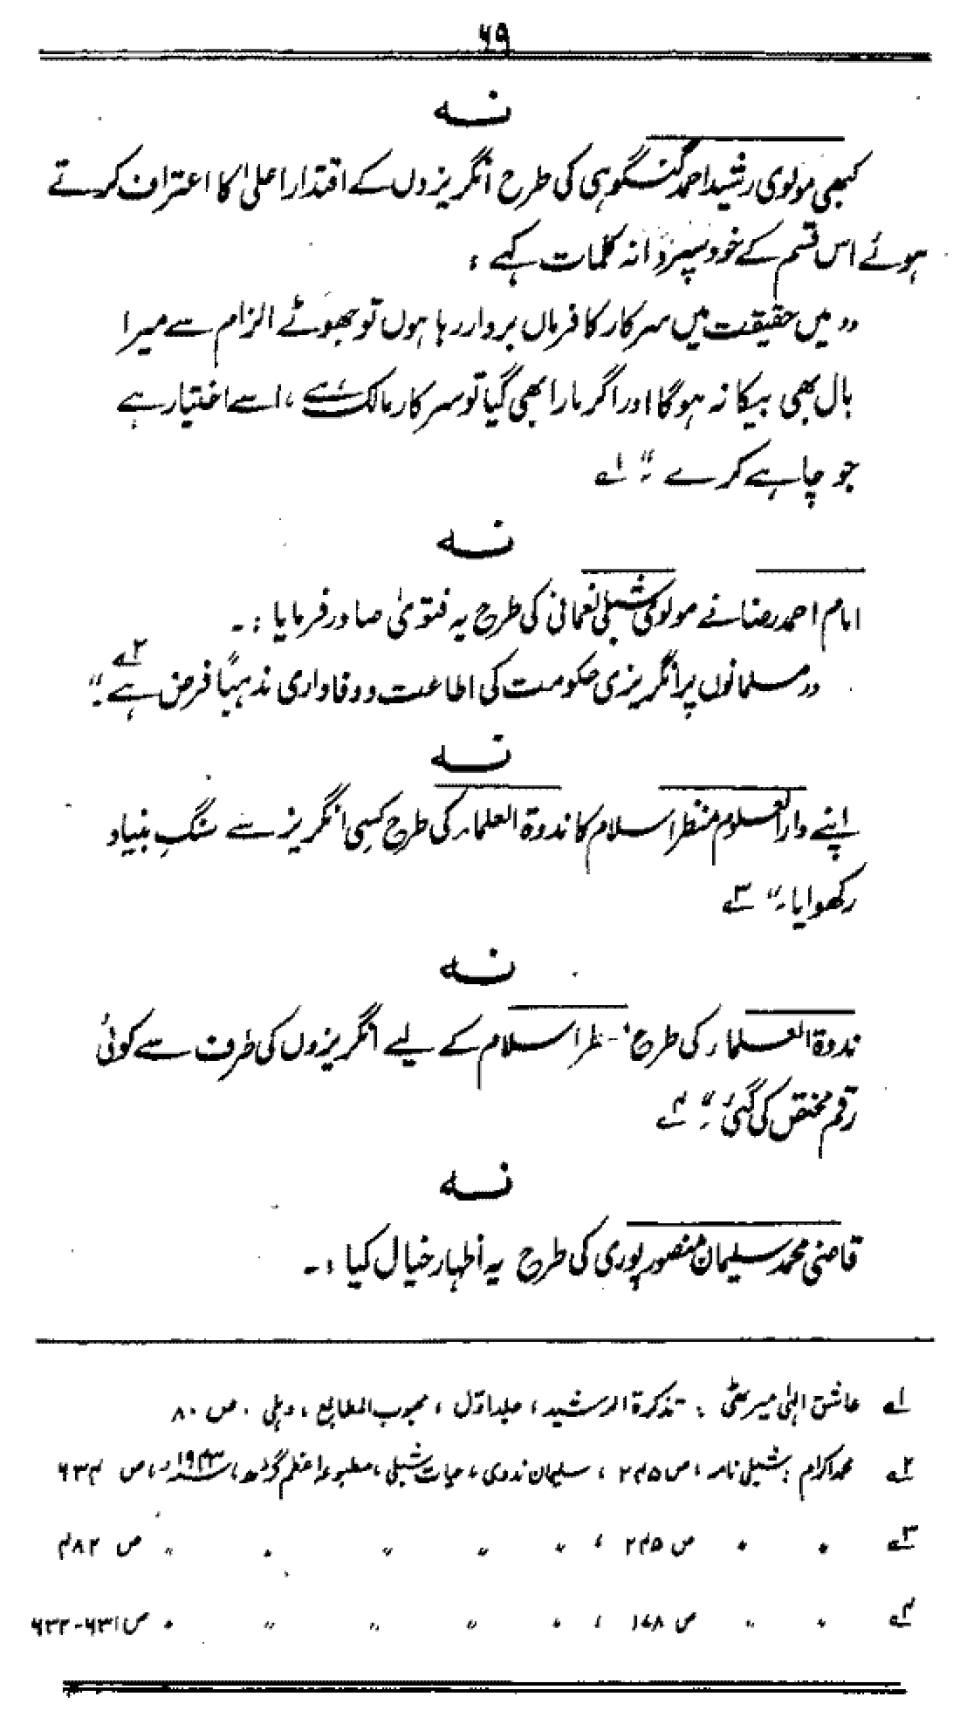 ۶۹
نہ
کبھی مولوی رشید احمد گنگوہی کی طرح انگریزوں کے اقتدار اعلیٰ کا اعتراف کرتے
ہوئے اس قسم کے خود سپردانہ کلمات کہے :
”میں حقیقت میں سرکار کا فرماں بردار رہا ہوں تو جھوٹے الزام سے میرا
بال بھی بیکا نہ ہوگا اور اگر مارا بھی گیا تو سرکار مالک ہے ، اسے اختیار ہے
جو چاہے کرے ۔“ ۱ے
نہ
امام احمد رضا نے مولوی شبلی نعمانی کی طرح یہ فتویٰ صادر فرمایا :۔
”مسلمانوں پر انگریزی حکومت کی اطاعت و وفاداری مذہباً فرض ہے “ ۲ے
نہ
اپنے دارالعلوم منظر اسلام کا ندوۃ العلماء کی طرح کسی انگریز سے سنگِ بنیاد
رکھوایا ۔“ ۳ے
نہ
ندوۃ العلماء کی طرح منظر اسلام کے لیے انگریزوں کی طرف سے کوئی
رقم مختص کی گئی ۔“ ۴ے
نہ
قاضی محمد سلیمان منصور پوری کی طرح یہ اظہار خیال کیا :۔
۱ے عاشق الٰہی میرٹھی : تذکرۃ الرشید ، جلد اوّل ، محبوب المطابع ، دہلی ، ص ۸۰
۲ے محمد اکرام : شبلی نامہ ، ص ۲۴۵ ، سلیمان ندوی ، حیات شبلی ، مطبوعہ اعظم گڑھ ، ۱۹۴۳ء ، ص ۶۳۴
۳ے 〃 〃 ص ۲۴۵ ، 〃 〃 〃 〃 〃 ص ۴۸۲
۴ے 〃 〃 ص ۱۴۸ ، 〃 〃 〃 〃 〃 ص ۶۳۱-۶۳۲